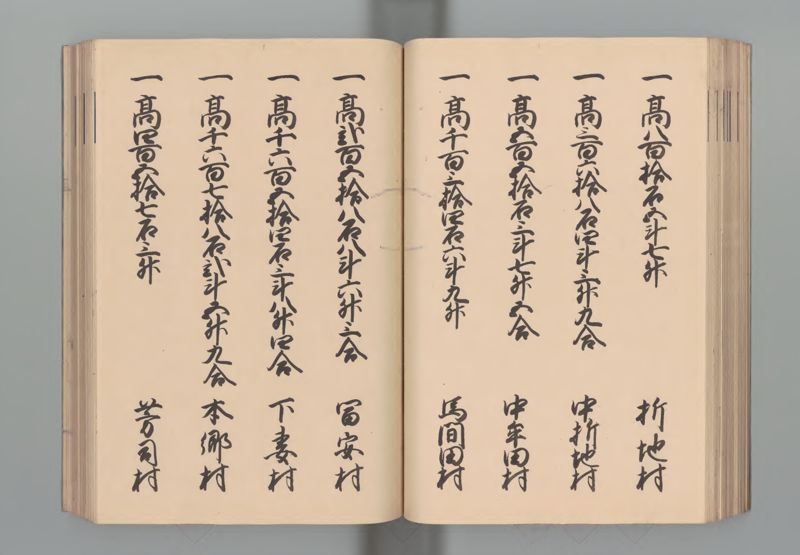 一高八百拾石五斗七升 折地村
一高三百六拾八石四斗三升九合 中折地村
一高五百五拾石三斗七升五合 中牟田村
一高千百三拾四石六斗九升 馬間田村
一高弐百五拾八石八斗六升三合 冨安村
一高千六百五拾四石三斗八升四合 下妻村
一高千六百七拾八石弐斗五升九合 本郷村
一高四百五拾七石三升 芳司村